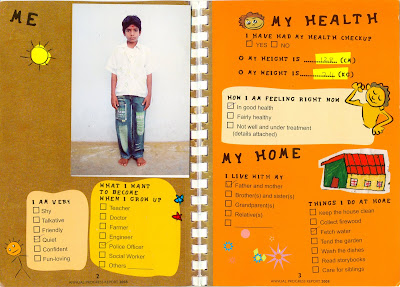 ME
I AM VERY
Shy
Talkative
Friendly
Quiet
Confident
Fun-loving
WHAT I WANT
TO BECOME
WHEN I GROW UP
Teacher
Doctor
Farmer
Engineer
Police Officer
Social Worker
Others
2
ANNUAL PROGRESS REPORT 2005
MY HEALTH
I HAVE HAD MY HEALTH CHECKUP
YES NO
MY HEIGHT IS (CM)
MY HEIGHT IS (KG)
HOW I AM FEELING RIGHT NOW
In good health
Fairly healthy
Not well and under treatment
(details attached)
MY HOME
I LIVE WITH MY
Father and mother
Brother(s) and sister(s)
Grandparent(s)
Relative(s)
THINGS I DO AT HOME
Keep the house clean
Collect firewood
Fetch water
Tend the garden
Wash the dishes
Read storybooks
Care for siblings
3
ANNUAL PROGRESS REPORT